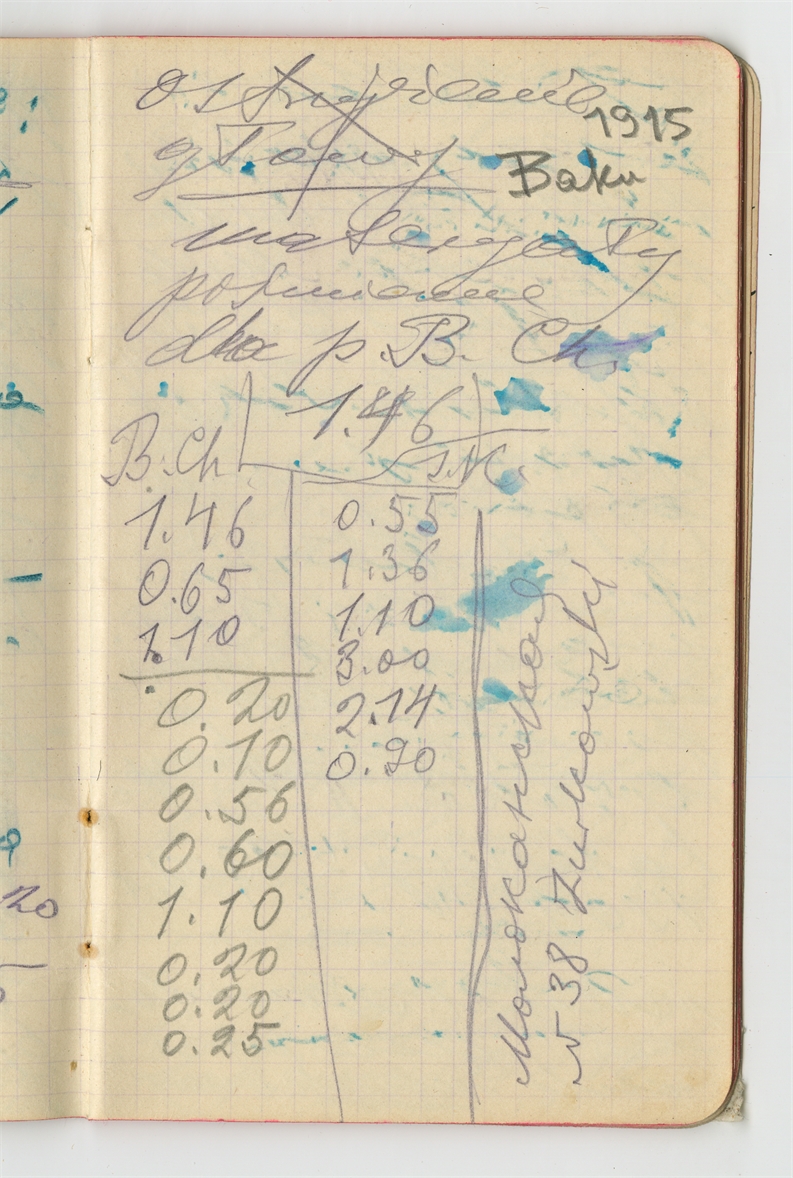 ostrzyżenie
głowy
1915
Baku
materyały
pośmienne
dla p. B. Ch.
1.46
B. Ch.
1.46
0.65
1.10
0.20
0.10
0.56
0.60
1.10
0.20
0.20
0.25
0.55
1.36
1.10
3.00
2.14
0.20
Молоканская
№ 38 Żurkowsky
20